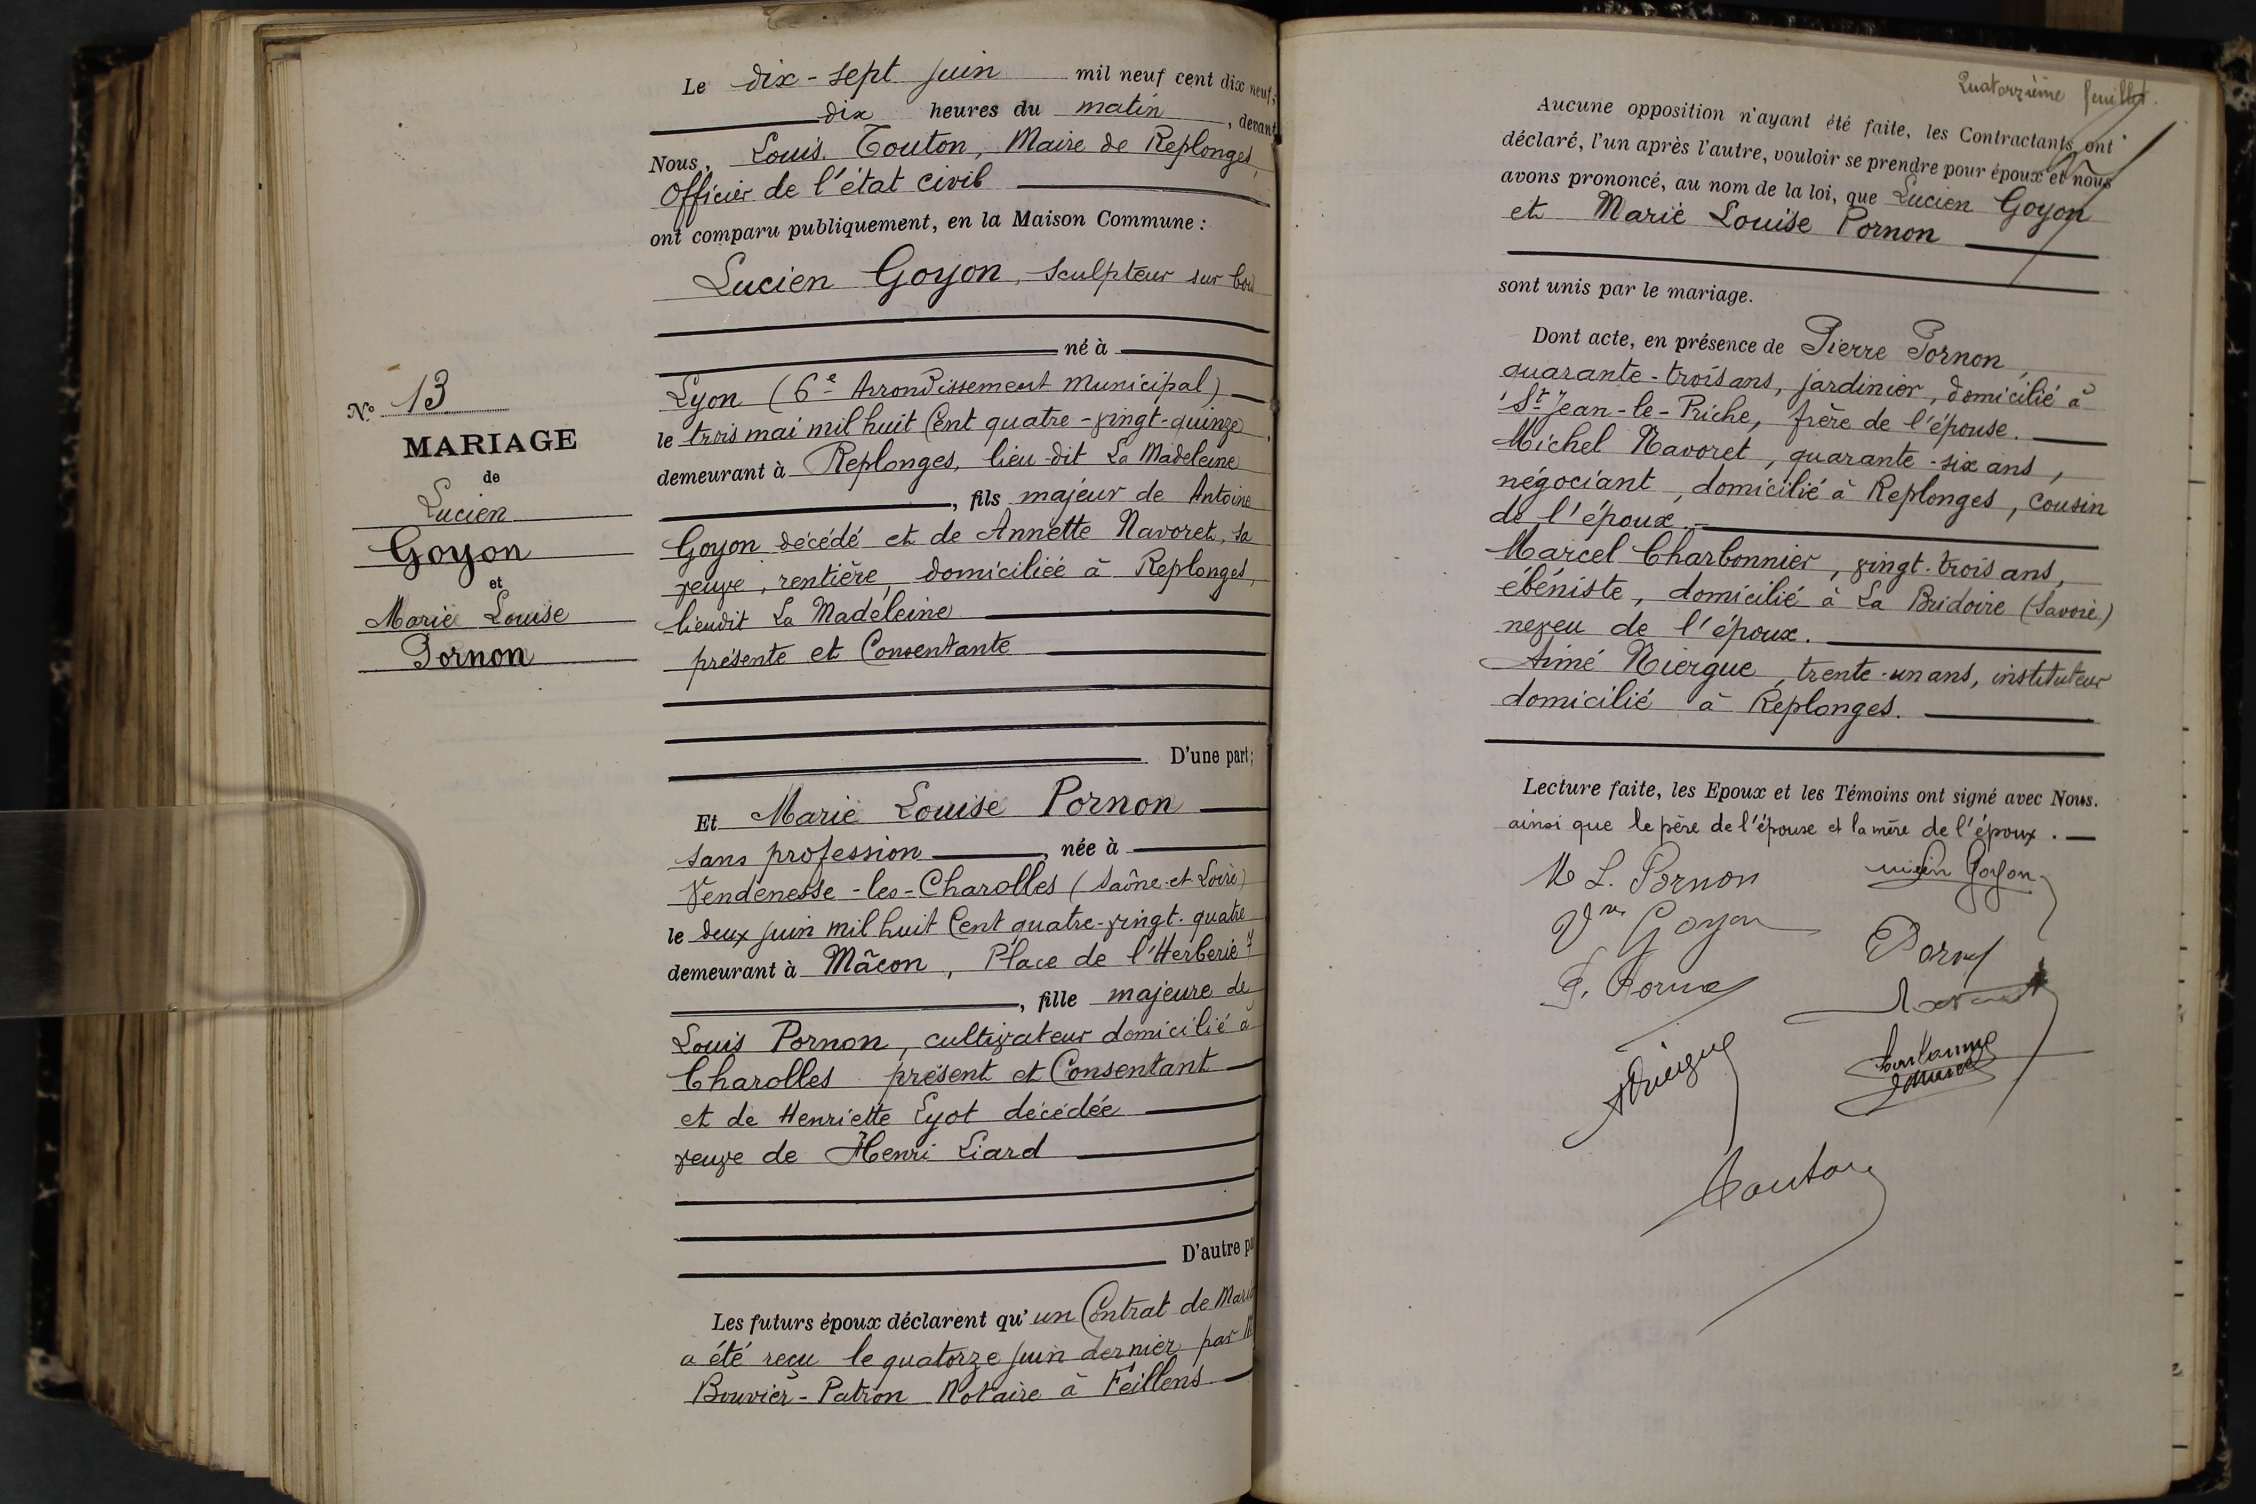 Le dix-sept juin mil neuf cent dix neuf,
dix heures du matin, devant
Nous, Louis Touton, Maire de Replonges,
Officier de l'état civil
ont comparu publiquement, en la Maison Commune :
Lucien Goyon, sculpteur sur bois
né à
Lyon (6e Arrondissement municipal)
le trois mai mil huit Cent quatre-vingt-quinze
demeurant à Replonges, lieu-dit La Madeleine
, fils majeur de Antoine
Goyon décédé et de Annette Navoret, sa
veuve, rentière, domiciliée à Replonges,
lieudit La Madeleine
présente et Consentante
D'une part;
No 13
MARIAGE
de
Lucien
Goyon
et
Marie Louise
Pornon
Et Marie Louise Pornon
sans profession, née à
Vendenesse-les-Charolles (Saône-et-Loire)
le deux juin mil huit Cent quatre-vingt-quatre
demeurant à Mâcon, Place de l'Herberie 7
, fille majeure de
Louis Pornon, cultivateur domicilié à
Charolles présent et Consentant
et de Henriette Lyot décédée
veuve de Henri Liard
D'autre pa
Les futurs époux déclarent qu'un Contrat de Maria
a été reçu le quatorze juin dernier par M
Bouvier-Patron Notaire à Feillens
Quatorzième feuillet.
Aucune opposition n'ayant été faite, les Contractants ont
déclaré, l'un après l'autre, vouloir se prendre pour époux et nous
avons prononcé, au nom de la loi, que Lucien Goyon
et Marie Louise Pornon
sont unis par le mariage.
Dont acte, en présence de Pierre Pornon,
quarante-trois ans, jardinier, domicilié à
St Jean-le-Priche, frère de l'épouse.
Michel Navoret, quarante-six ans,
négociant, domicilié à Replonges, cousin
de l'époux.
Marcel Charbonnier, vingt-trois ans,
ébéniste, domicilié à La Bridoire (Savoie)
neveu de l'époux.
Aimé Niergue, trente-un ans, instituteur
domicilié à Replonges.
Lecture faite, les Epoux et les Témoins ont signé avec Nous.
ainsi que le père de l'épouse et la mère de l'époux.
M L. Pornon
Goyon
Vve Goyon
Touton